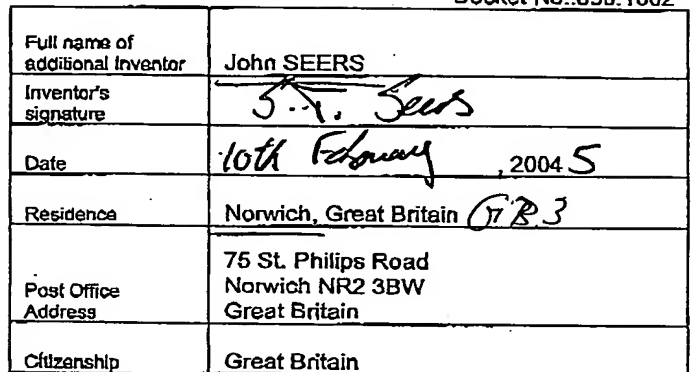 Full name of additional Inventor John SEERS
Inventor's signature Seers
Date 10th February, 2004 5
Residence Norwich, Great Britain GB3
Post Office Address 75 St. Philips Road
Norwich NR2 3BW
Great Britain
Citizenship Great Britain